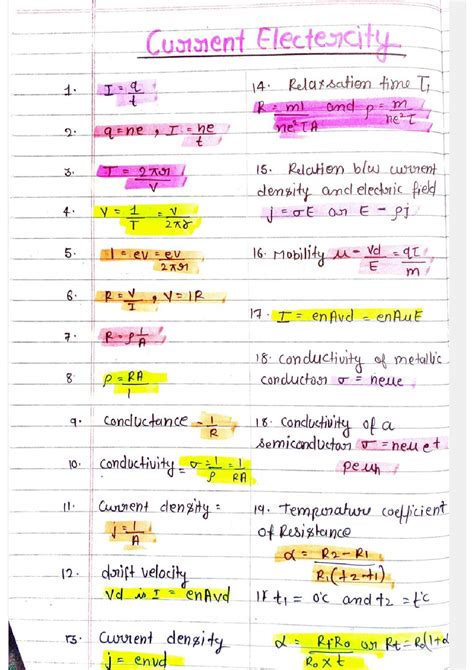 Current Electercity
1. I = q/t
2. q = ne , I = ne/t
3. T = 2πr/V
4. V = 1/T = v/2πr
5. I = ev = ev/2πr
6. R = V/I , V = IR
7. R = ρ l/A
8 ρ = RA/l
9. conductance = 1/R
10. conductivity = σ = 1/ρ = l/RA
11. Current density =
j = I/A
12. drift velocity
Vd is I = enAvd
13. Current density
j = envd
14. Relaxsation time T,
R = ml/ne²TA and ρ = m/ne²T
15. Relation b/w current
density and electric field
j = σE or E - ρJ
16. Mobility μ - vd/E = qT/m
17. I = enAvd = enAuE
18. conductivity of metallic
conductor σ = neue
18. Conductivity of a
semiconductor σ = neue+
peuh
19. Temparature coefficient
of Resistance
α = R2-R1/R1(t2-t1)
If t1 = 0°c and t2 = t°c
α = RtR0/R0 x t or Rt = R0(1+α